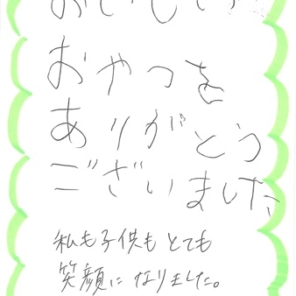 おいしい
おやつを
ありがとう
ございました
私も子供もとても
笑顔になりました。